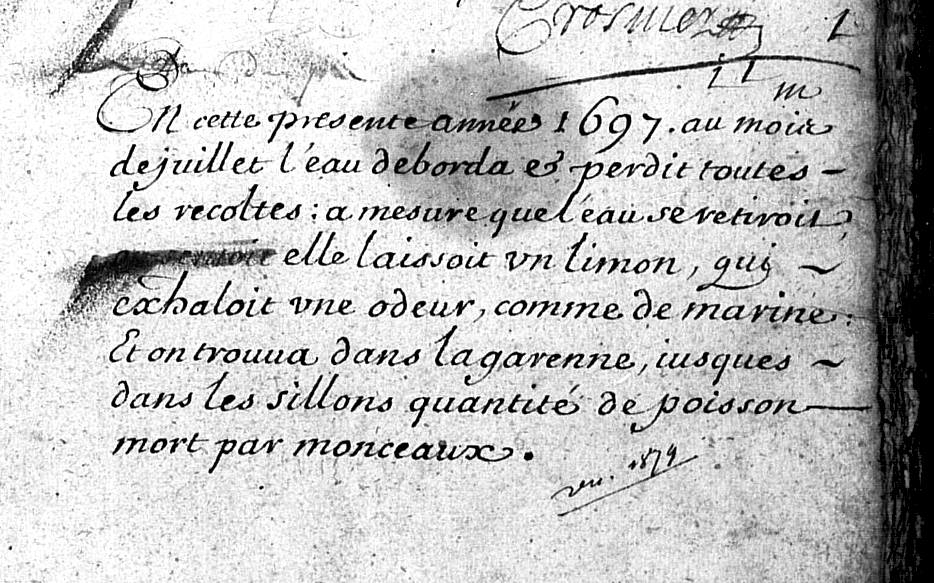 Crosnier
En cette presente année 1697. au mois
de juillet l'eau deborda et perdit toutes
les recoltes : a mesure que l'eau se retiroit,
elle laissoit vn limon, qui
exhaloit vne odeur, comme de marine :
Et on trouua dans la garenne, iusques
dans les sillons quantité de poisson
mort par monceaux.
vu. 1874